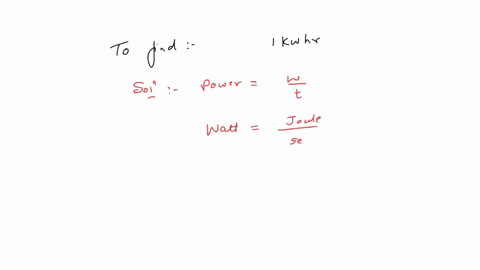 To find :- 1 Kwhr
Soln :- Power = W/t
Watt = Joule/se